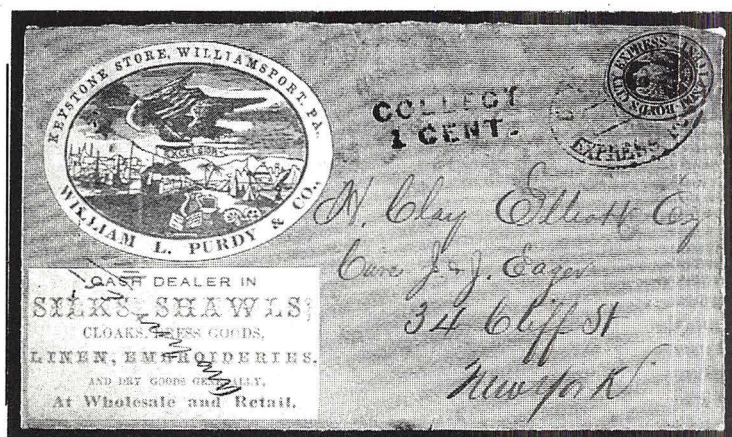 KEYSTONE STORE, WILLIAMSPORT, PA.
EXCELSIOR
WILLIAM L. PURDY & CO.,
CASH DEALER IN
SILKS, SHAWLS,
CLOAKS, DRESS GOODS,
LINEN, EMBROIDERIES,
AND DRY GOODS GENERALLY,
At Wholesale and Retail.
COLLECT
1 CENT.
BOYDS CITY EXPRESS
EXPRESS
H. Clay Elliott Esq
Care J. & J. Eager
34 Cliff St
New York